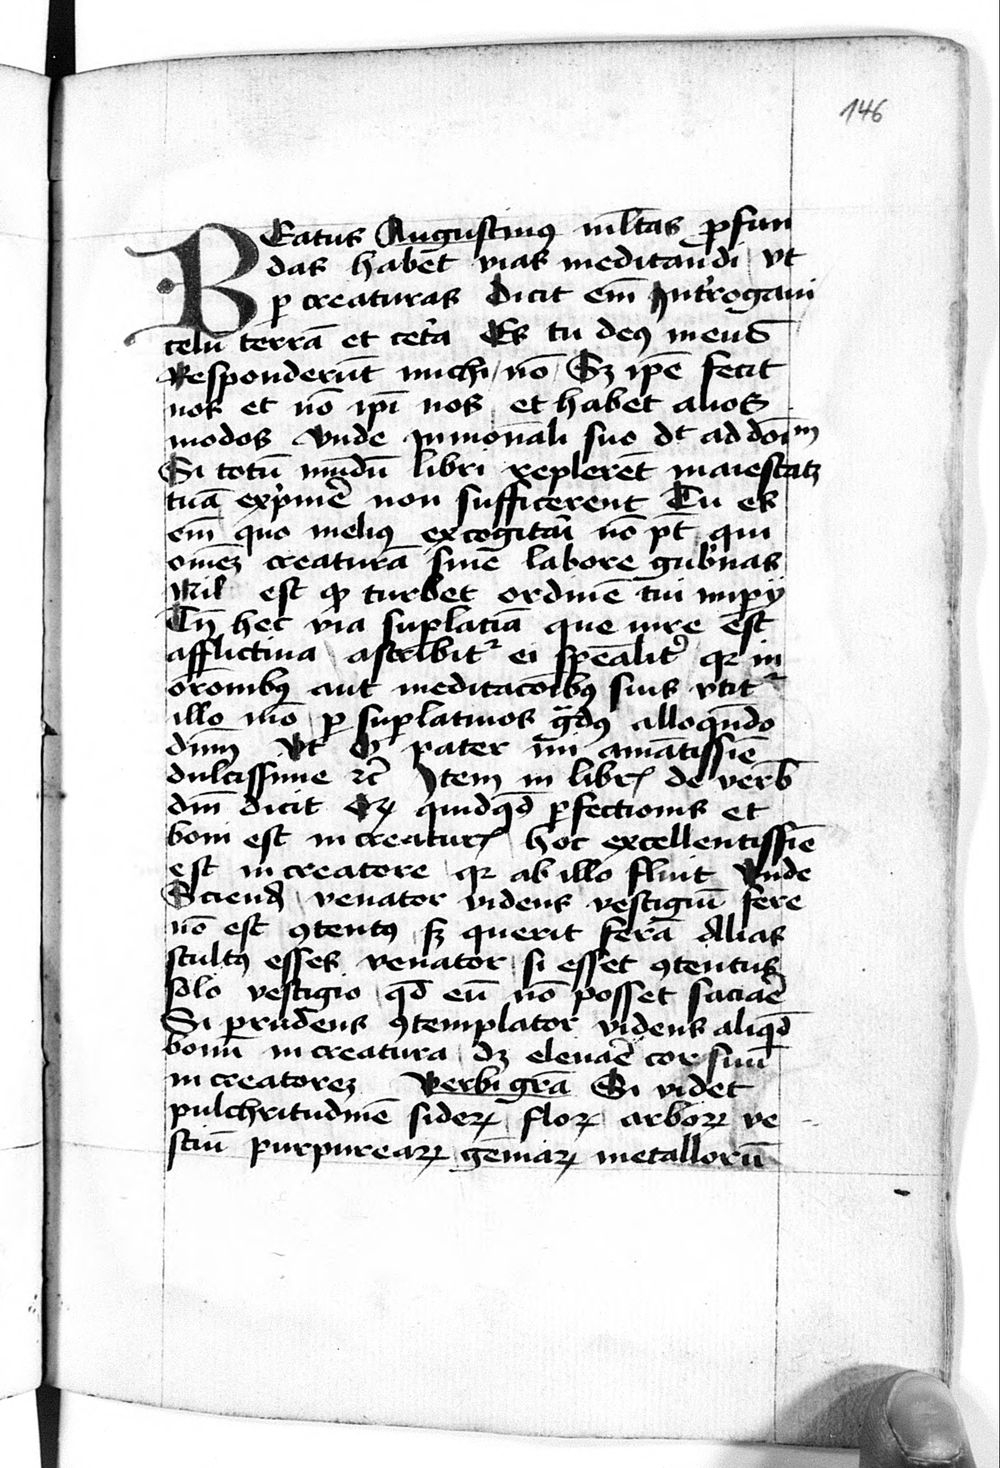 146
BEatus Augustinus ml̄tas ꝓfun
das habēt vias meditandi vt
ꝑ creaturas Dicit em̄ Int̓rogaui
celū terrā et cet̓a Es tu deꝰ meus
Responderūt michi nō Sꝫ ip̄e fecit
nos et nō ip̄i nos et habet alios
modos Vnde in monāli suo dt̄ ad doīm
Si totū mūdū libri replerēt maiestatꝫ
tuā exp̓mē non sufficerent Tu es
em̄ quo meliꝰ excogitai̅ nō pt̄ qui
oēmꝫ creaturā sine labore gub̓nas
Nil est qꝫ turbet ordinē tui imꝑij
Tn̄ hec via suꝑlatiā que iure est
afflictiua ascribit᷑ ei sp̄ealit̓ qꝛ in
orōnibꝰ aut meditacōibꝰ suis vtit᷑
illo mō ꝑ suꝑlatiuos gͣdꝰ alloqūdo
dūm Vt O pater mi amātissīe
dulcissime ⁊c̄ Item in libꝝ de verb̄
dm̄ dicit Qꝫ quidqͥd ꝑfectionis et
boni est in creaturꝭ hoc excellentissīe
est in creatore qꝛ ab illo fluit Vnde
Sciend̄ venator videns vestigiū fere
nō est ꝯtentꝰ sꝫ querit ferā Alias
stultꝰ esses venator si esset ꝯtentus
solo vestigio qd̄ eū nō posset saciaē
Si prudens ꝯtemplator videns aliqͥd
bonū in creatura dꝫ eleuaē cor suū
in creatorēꝫ Verbi grā Si videt
pulchritudinē sideꝝ floꝝ arboꝝ ve
stiū purpureaꝝ gēmaꝝ metallorū